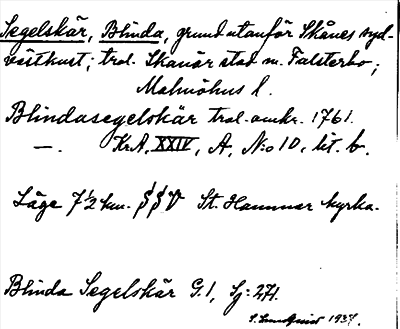 Segelskär, Blinda, grund utanför Skånes syd-
västkust; trol. Skanör stad m. Falsterbo;
Malmöhus l.
Blindasegelskär trol. omkr. 1761.
—. KrA, XXIV, A, N:o 10, lit. b.
Läge 7½ km. SSV St. Hammar kyrka.
Blinda Segelskär G. 1, Sj: 271.
1937.